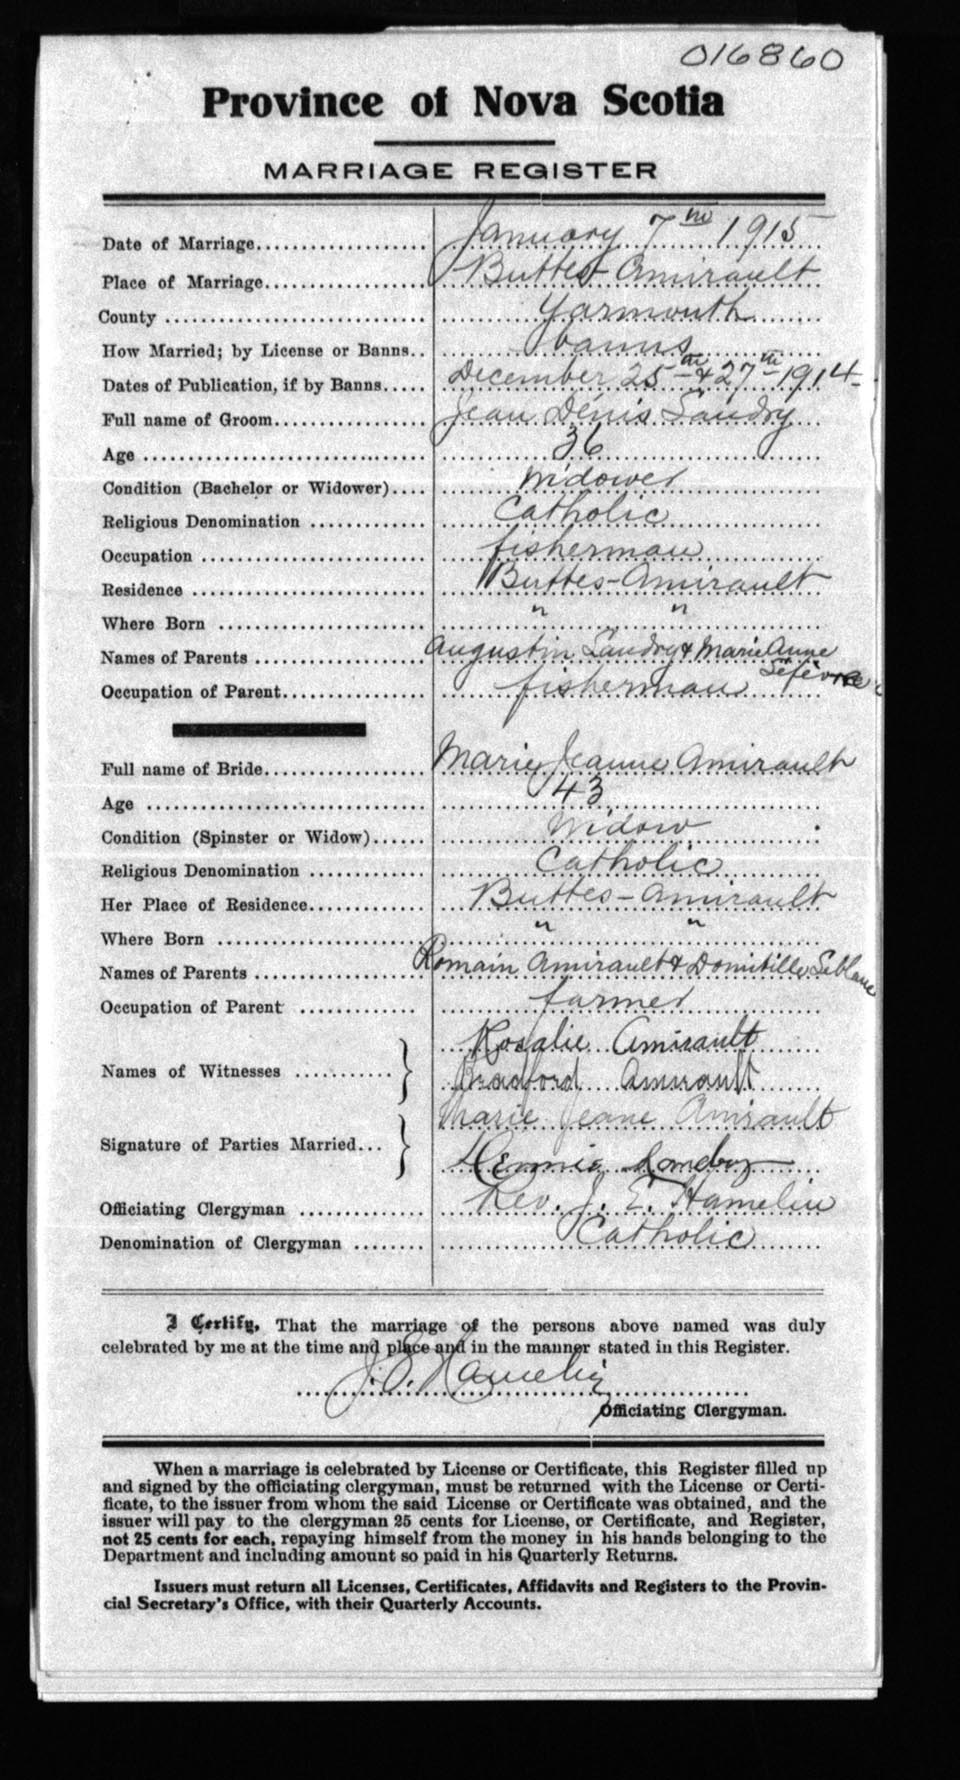 016860
Province of Nova Scotia
MARRIAGE REGISTER
Date of Marriage.................. January 7th 1915
Place of Marriage.................. Buttes-Amirault
County .................. Yarmouth
How Married; by License or Banns.. banns
Dates of Publication, if by Banns..... December 25th & 27th 1914-
Full name of Groom.................. Jean Dénis Landry
Age .................. 36
Condition (Bachelor or Widower).... Widower
Religious Denomination ............ Catholic
Occupation .................. fisherman
Residence .................. Buttes-Amirault
Where Born .................. " "
Names of Parents .................. Augustin Landry & Marie Anne Lefèvre
Occupation of Parent.................. fisherman
Full name of Bride.................. Marie Jeanne Amirault
Age .................. 43
Condition (Spinster or Widow)...... Widow
Religious Denomination ............ Catholic
Her Place of Residence............. Buttes-Amirault
Where Born .................. " "
Names of Parents .................. Romain Amirault & Domitille Leblanc
Occupation of Parent ............. farmer
Names of Witnesses ........... } Rosalie Amirault
Bradford Amirault
Signature of Parties Married... } Marie Jeane Amirault
Dennis
Officiating Clergyman ............. Rev. J. E. Hamelin
Denomination of Clergyman ........ Catholic
I Certify, That the marriage of the persons above named was duly
celebrated by me at the time and place and in the manner stated in this Register.
J. E. Hamelin
Officiating Clergyman.
When a marriage is celebrated by License or Certificate, this Register filled up
and signed by the officiating clergyman, must be returned with the License or Certi-
ficate, to the issuer from whom the said License or Certificate was obtained, and the
issuer will pay to the clergyman 25 cents for License, or Certificate, and Register,
not 25 cents for each, repaying himself from the money in his hands belonging to the
Department and including amount so paid in his Quarterly Returns.
Issuers must return all Licenses, Certificates, Affidavits and Registers to the Provin-
cial Secretary's Office, with their Quarterly Accounts.